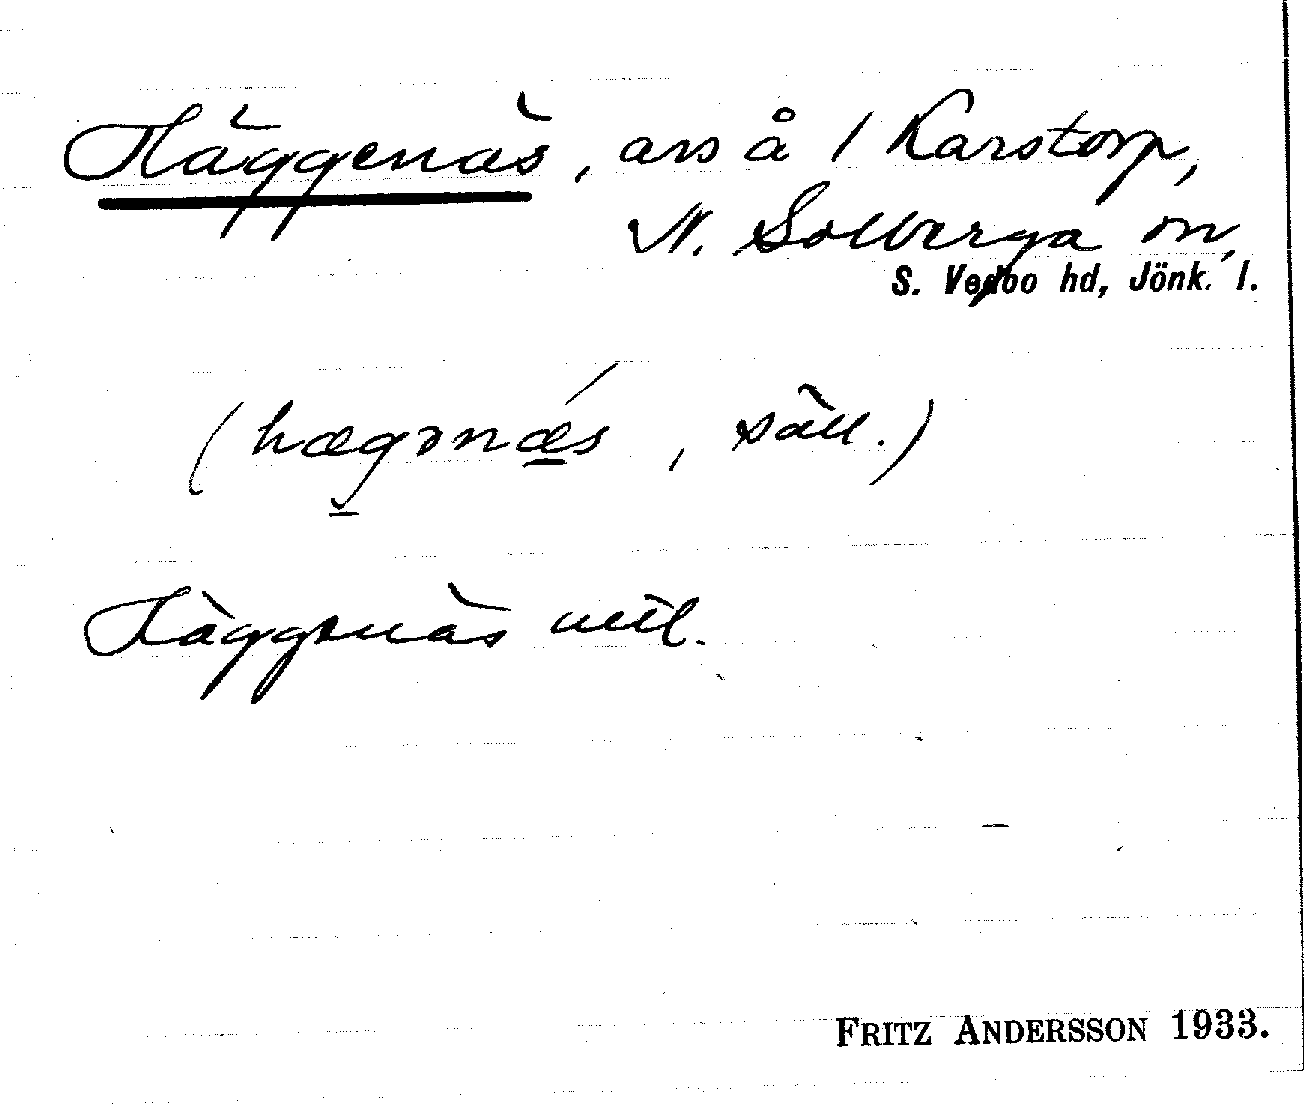 Häggenäs, avs å 1 Karstorp,
N. Solberga sn,
S. Vedbo hd, Jönk. l.
(hægənæs, säll.)
Häggenäs
FRITZ ANDERSSON 1933.